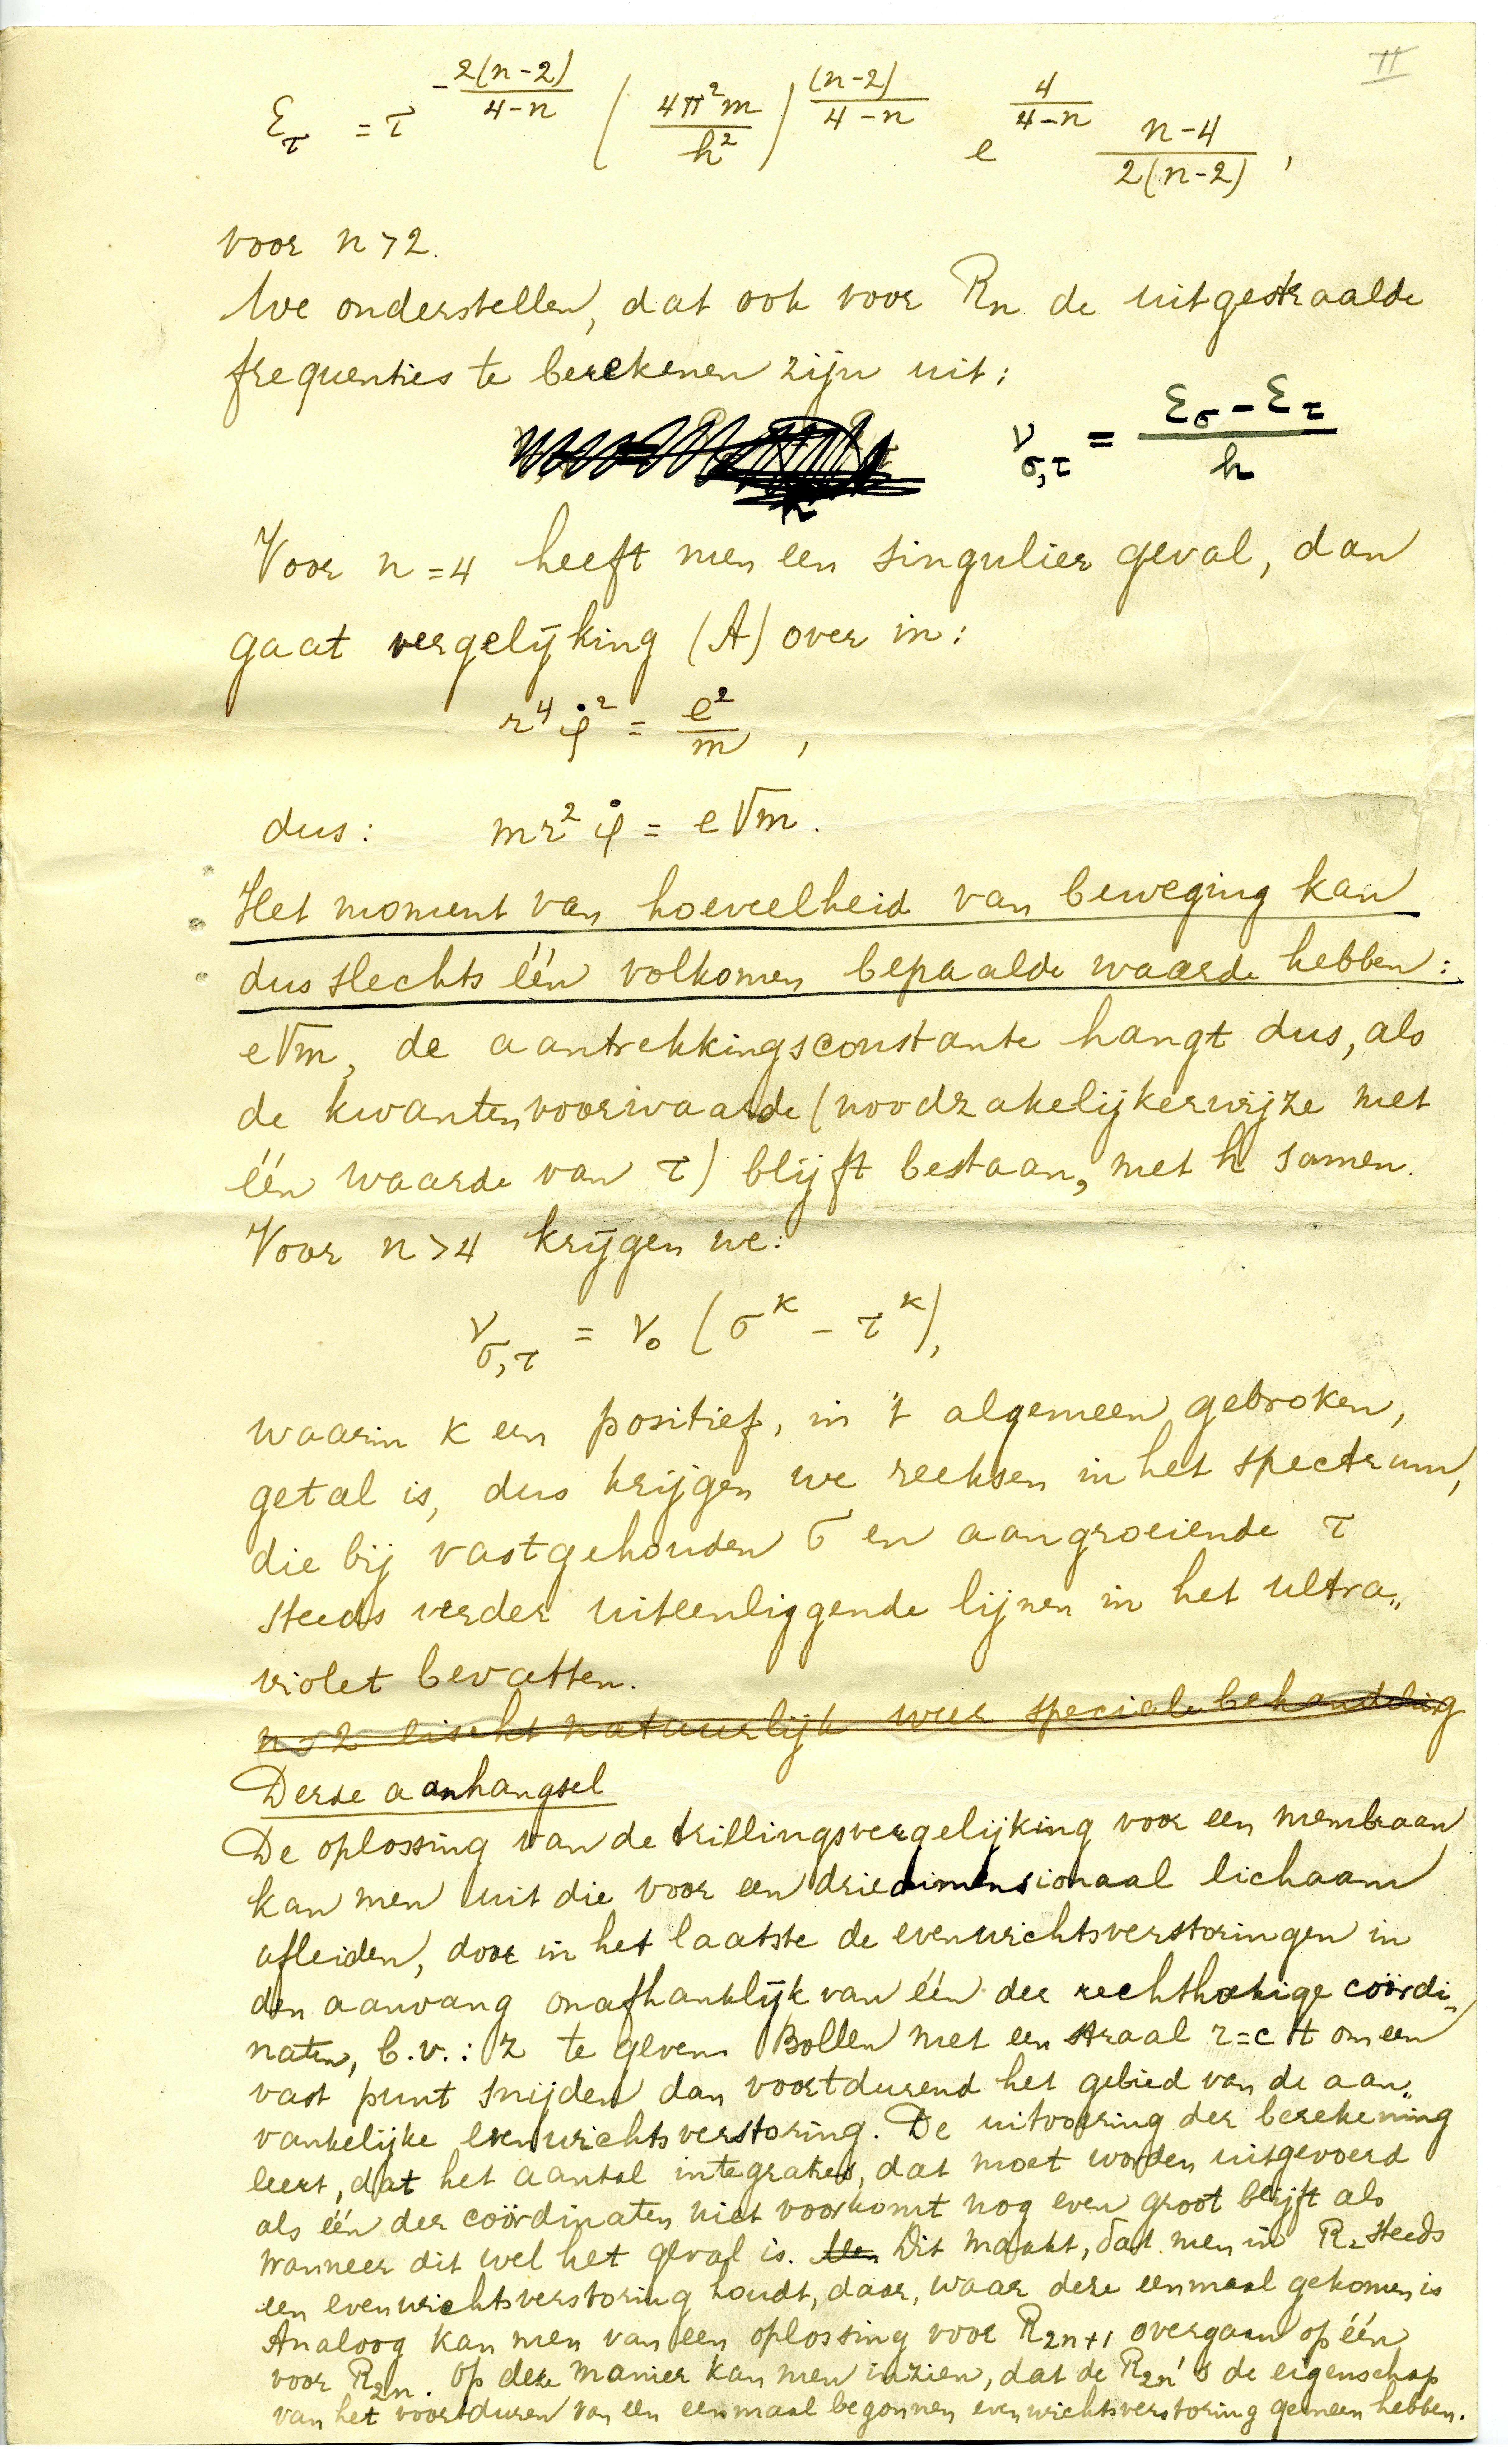 II
ε_τ = τ^{-2(n-2)/(4-n)} (4π²m/h²)^{(n-2)/(4-n)} e^{4/(4-n)} (n-4)/(2(n-2)),
voor n>2.
We onderstellen, dat ook voor Rn de uitgestraalde
frequenties te berekenen zijn uit:
ν_{σ,τ} = (ε_σ - ε_τ)/h
Voor n=4 heeft men een singulier geval, dan
gaat vergelijking (A) over in:
r⁴ φ̇² = e²/m ,
dus: mr² φ̇ = e√m.
Het moment van hoeveelheid van beweging kan
dus slechts één volkomen bepaalde waarde hebben:
e√m, de aantrekkingsconstante hangt dus, als
de kwantenvoorwaarde (noodzakelijkerwijze met
één waarde van τ) blijft bestaan, met h samen.
Voor n>4 krijgen we:
ν_{σ,τ} = ν₀ (σ^κ - τ^κ),
waarin κ een positief, in 't algemeen gebroken,
getal is, dus krijgen we reeksen in het spectrum,
die bij vastgehouden σ en aangroeiende τ
steeds verder uiteenliggende lijnen in het ultra„
violet bevatten.
n=2 eischt natuurlijk weer speciale behandeling
Derde aanhangsel
De oplossing van de trillingsvergelijking voor een membraan
kan men uit die voor een driedimensionaal lichaam
afleiden, door in het laatste de evenwichtsverstoringen in
den aanvang onafhankelijk van één der rechthoekige coördi„
naten, b.v.: z te geven. Bollen met een straal r=ct om een
vast punt snijden dan voortdurend het gebied van de aan„
vankelijke evenwichtsverstoring. De uitvoering der berekening
leert, dat het aantal integraties, dat moet worden uitgevoerd
als één der coördinaten niet voorkomt nog even groot blijft als
wanneer dit wel het geval is. Dit maakt, dat men in R₂ steeds
een evenwichtsverstoring houdt, daar, waar deze eenmaal gekomen is
Analoog kan men van een oplossing voor R_{2n+1} overgaan op één
voor R_{2n}. Op deze manier kan men inzien, dat de R_{2n}'s de eigenschap
van het voortduren van een eenmaal begonnen evenwichtsverstoring gemeen hebben.